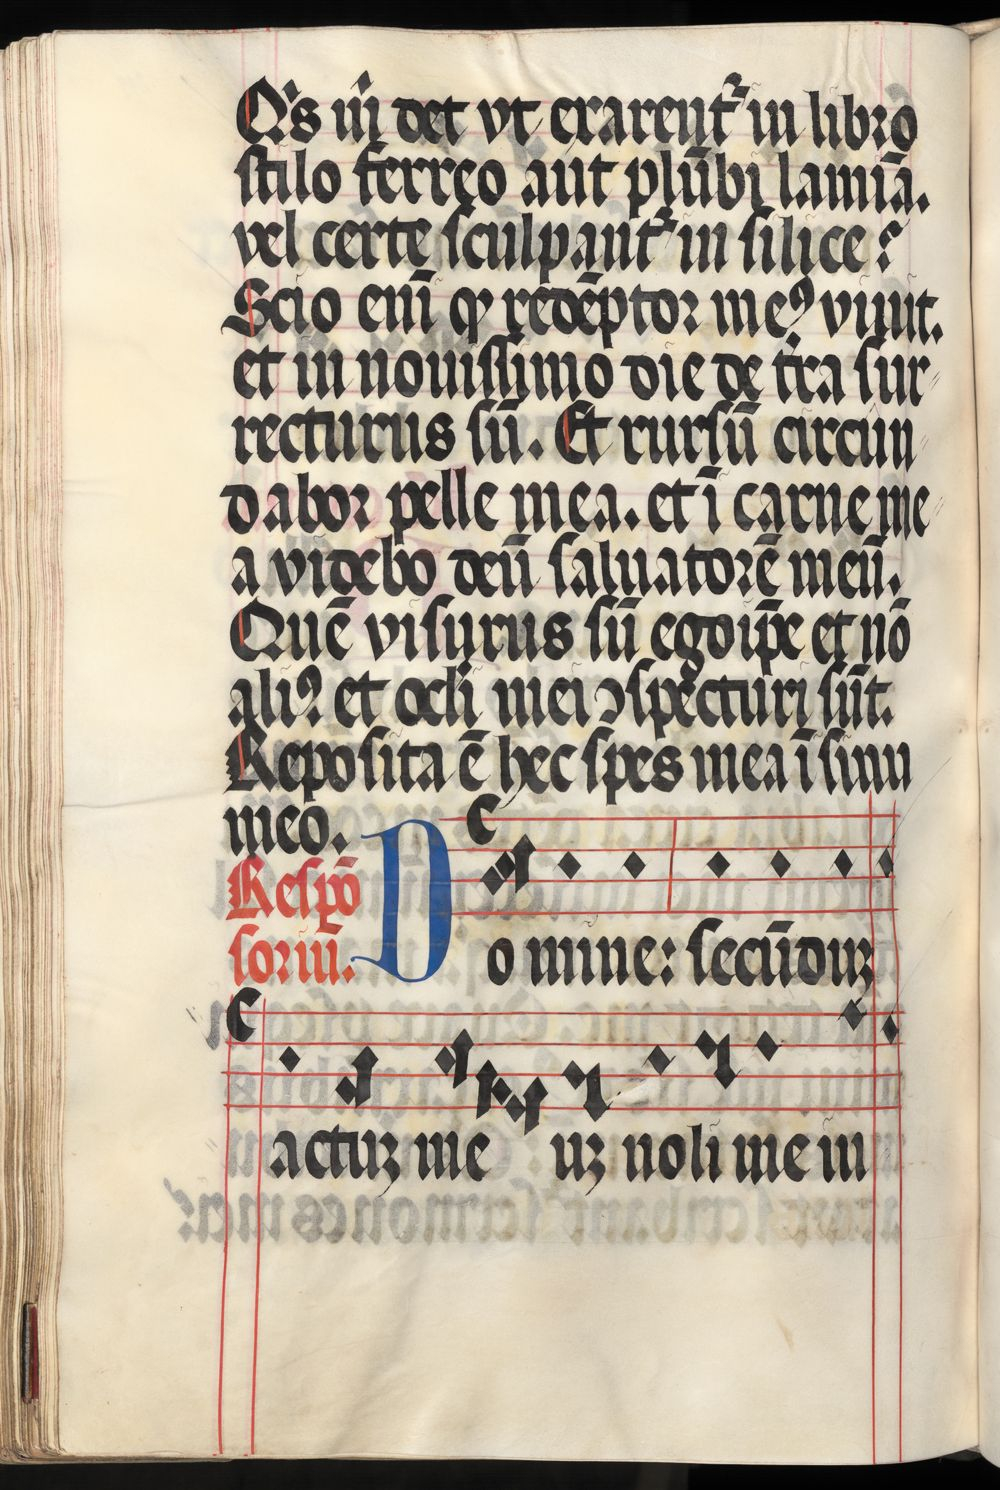 Q's m̄ det vt exarentᷣ in libro
stilo ferreo aut plūbi lamiā.
vel certe sculpantᷣ in silice?
Scio enī qꝛ redēptor meꝰ viuit.
et in nouissimo die de t̄ra sur
recturus sū. Et rursū circun
dabor pelle mea. et ī carne me
a videbo deū saluatorē meū.
Quē visurus sū ego ip̄e et nō
aliꝰ et ocl̄i mei ↄspecturi sūt.
Reposita ē hec spes mea ī sinu
meo.
Respō
soriū.
Domine: secūduꝫ
actuꝫ meuꝫ noli me in